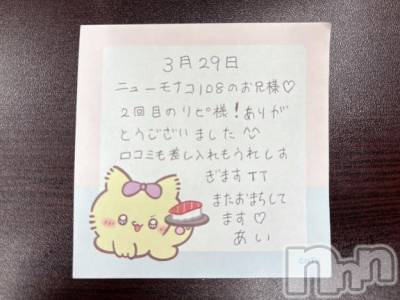 3月29日
ニューモナコ108のお兄様♡
2回目のリピ様！ありが
とうございました^^
口コミも差し入れもうれしす
ぎますTT
またおまちして
ます♡
あい